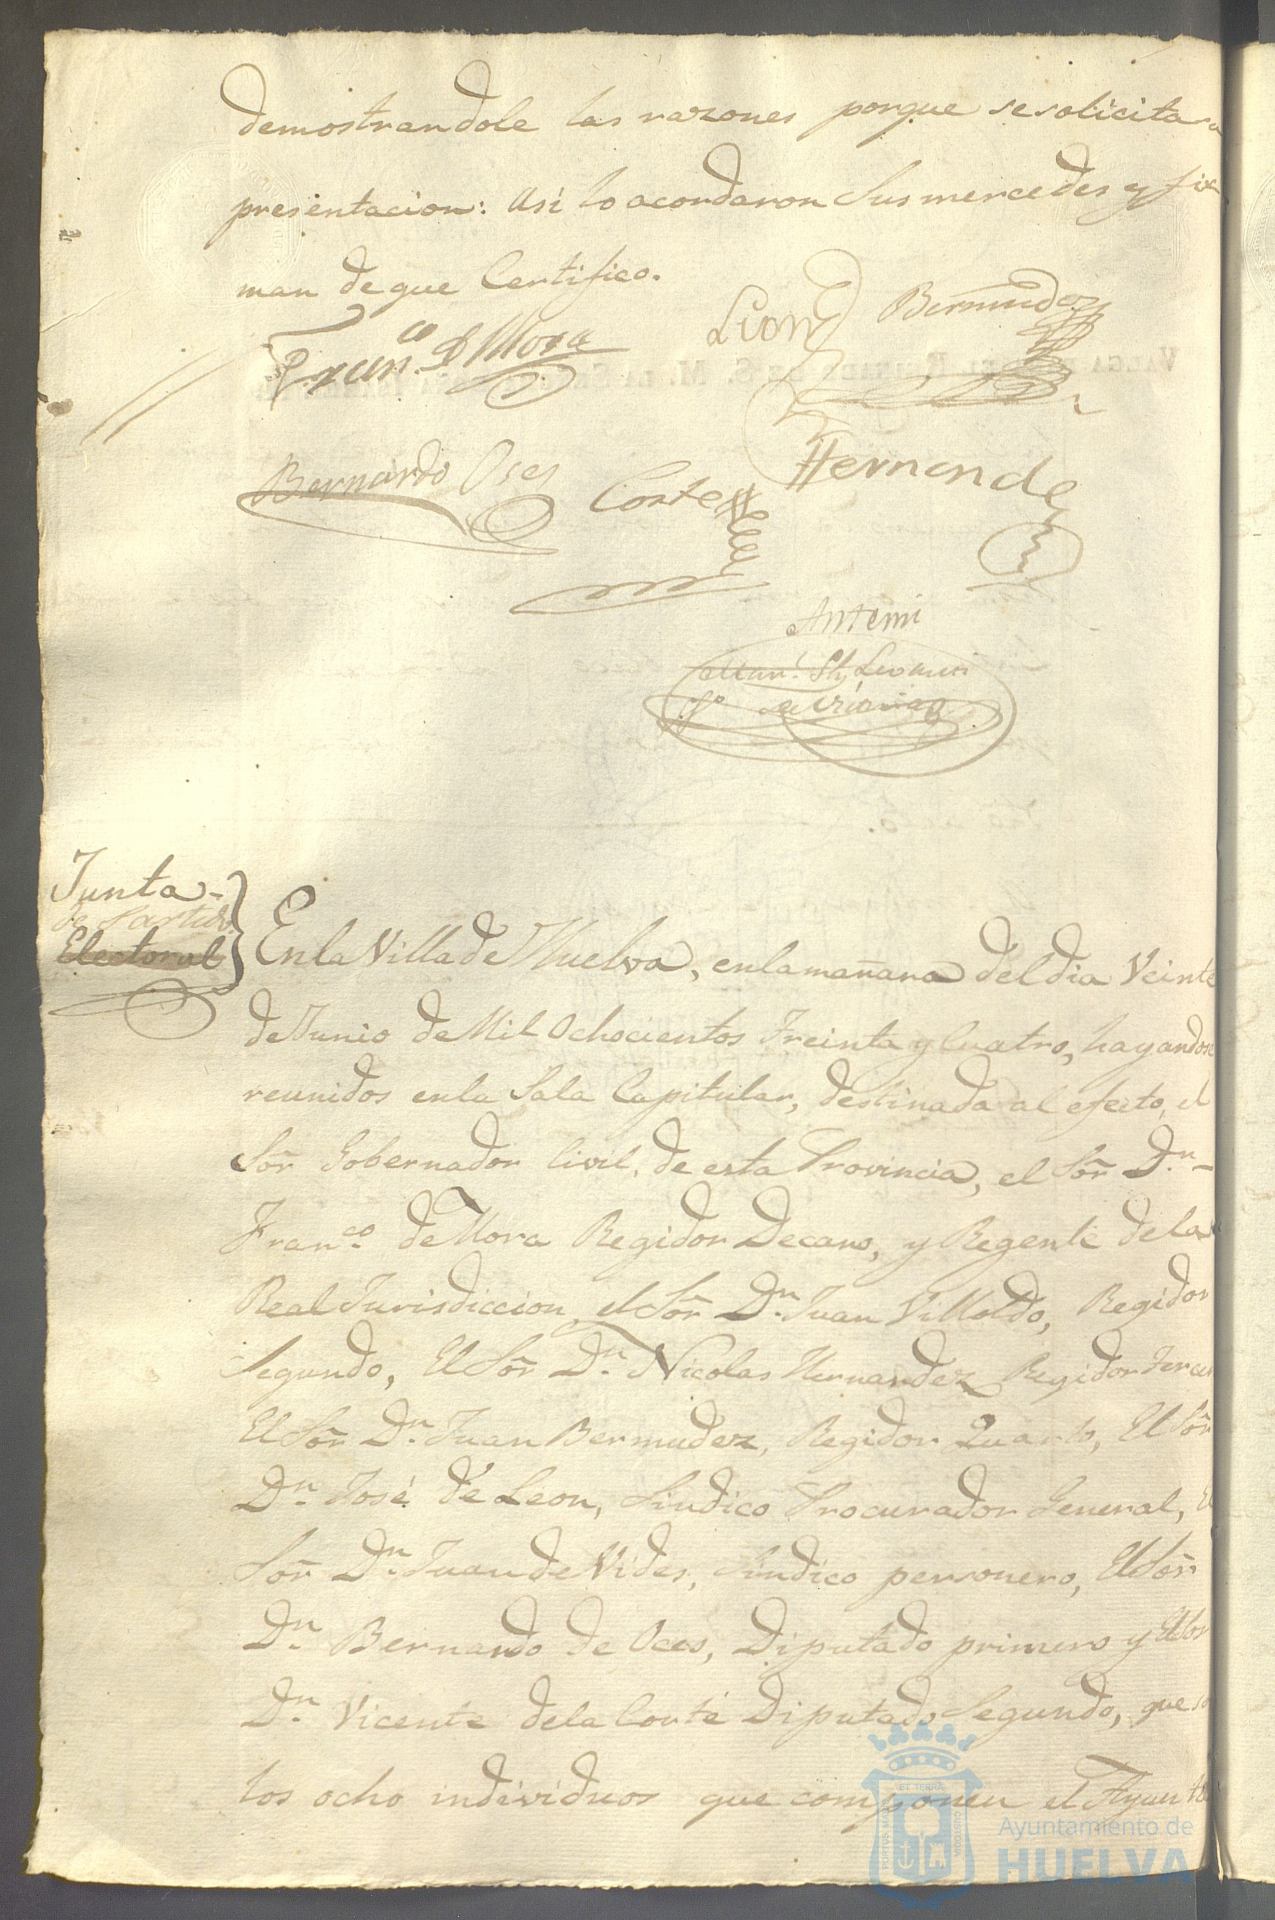 demostrandole las razones porque se solicita
presentacion: Asi lo acordaron Sus mercedes y fir
man de que Certifico.
Fran.co D Mora
Leon
Bermudez
Bernardo Oses
Corte
Hernandez
Antemi
Junta
de Partido
Electoral
En la Villa de Huelva, en la mañana del dia Veinte
de Junio de Mil Ochocientos Treinta y Cuatro, hayandose
reunidos en la Sala Capitular, destinada al efecto, el
Sor̃ Gobernador Civil, de esta Provincia, el Sor̃ D.n
Fran.co de Mora Regidor Decano, y Regente de la
Real Jurisdiccion, el Sor̃ D.n Juan Villoldo, Regidor
Segundo, El Sor̃ D.n Nicolas Hernandez Regidor Tercer
El Sor̃ D.n Juan Bermudez, Regidor Quarto, El Sor̃
D.n José de Leon, Sindico Procurador General, El
Sor̃ D.n Juan de Vides, Sindico personero, El Sor̃
D.n Bernardo de Oces, Diputado primero y El Sor
D.n Vicente de la Corte Diputado Segundo, que
los ocho individuos que componen el Ayunta
Ayuntamiento de
HUELVA